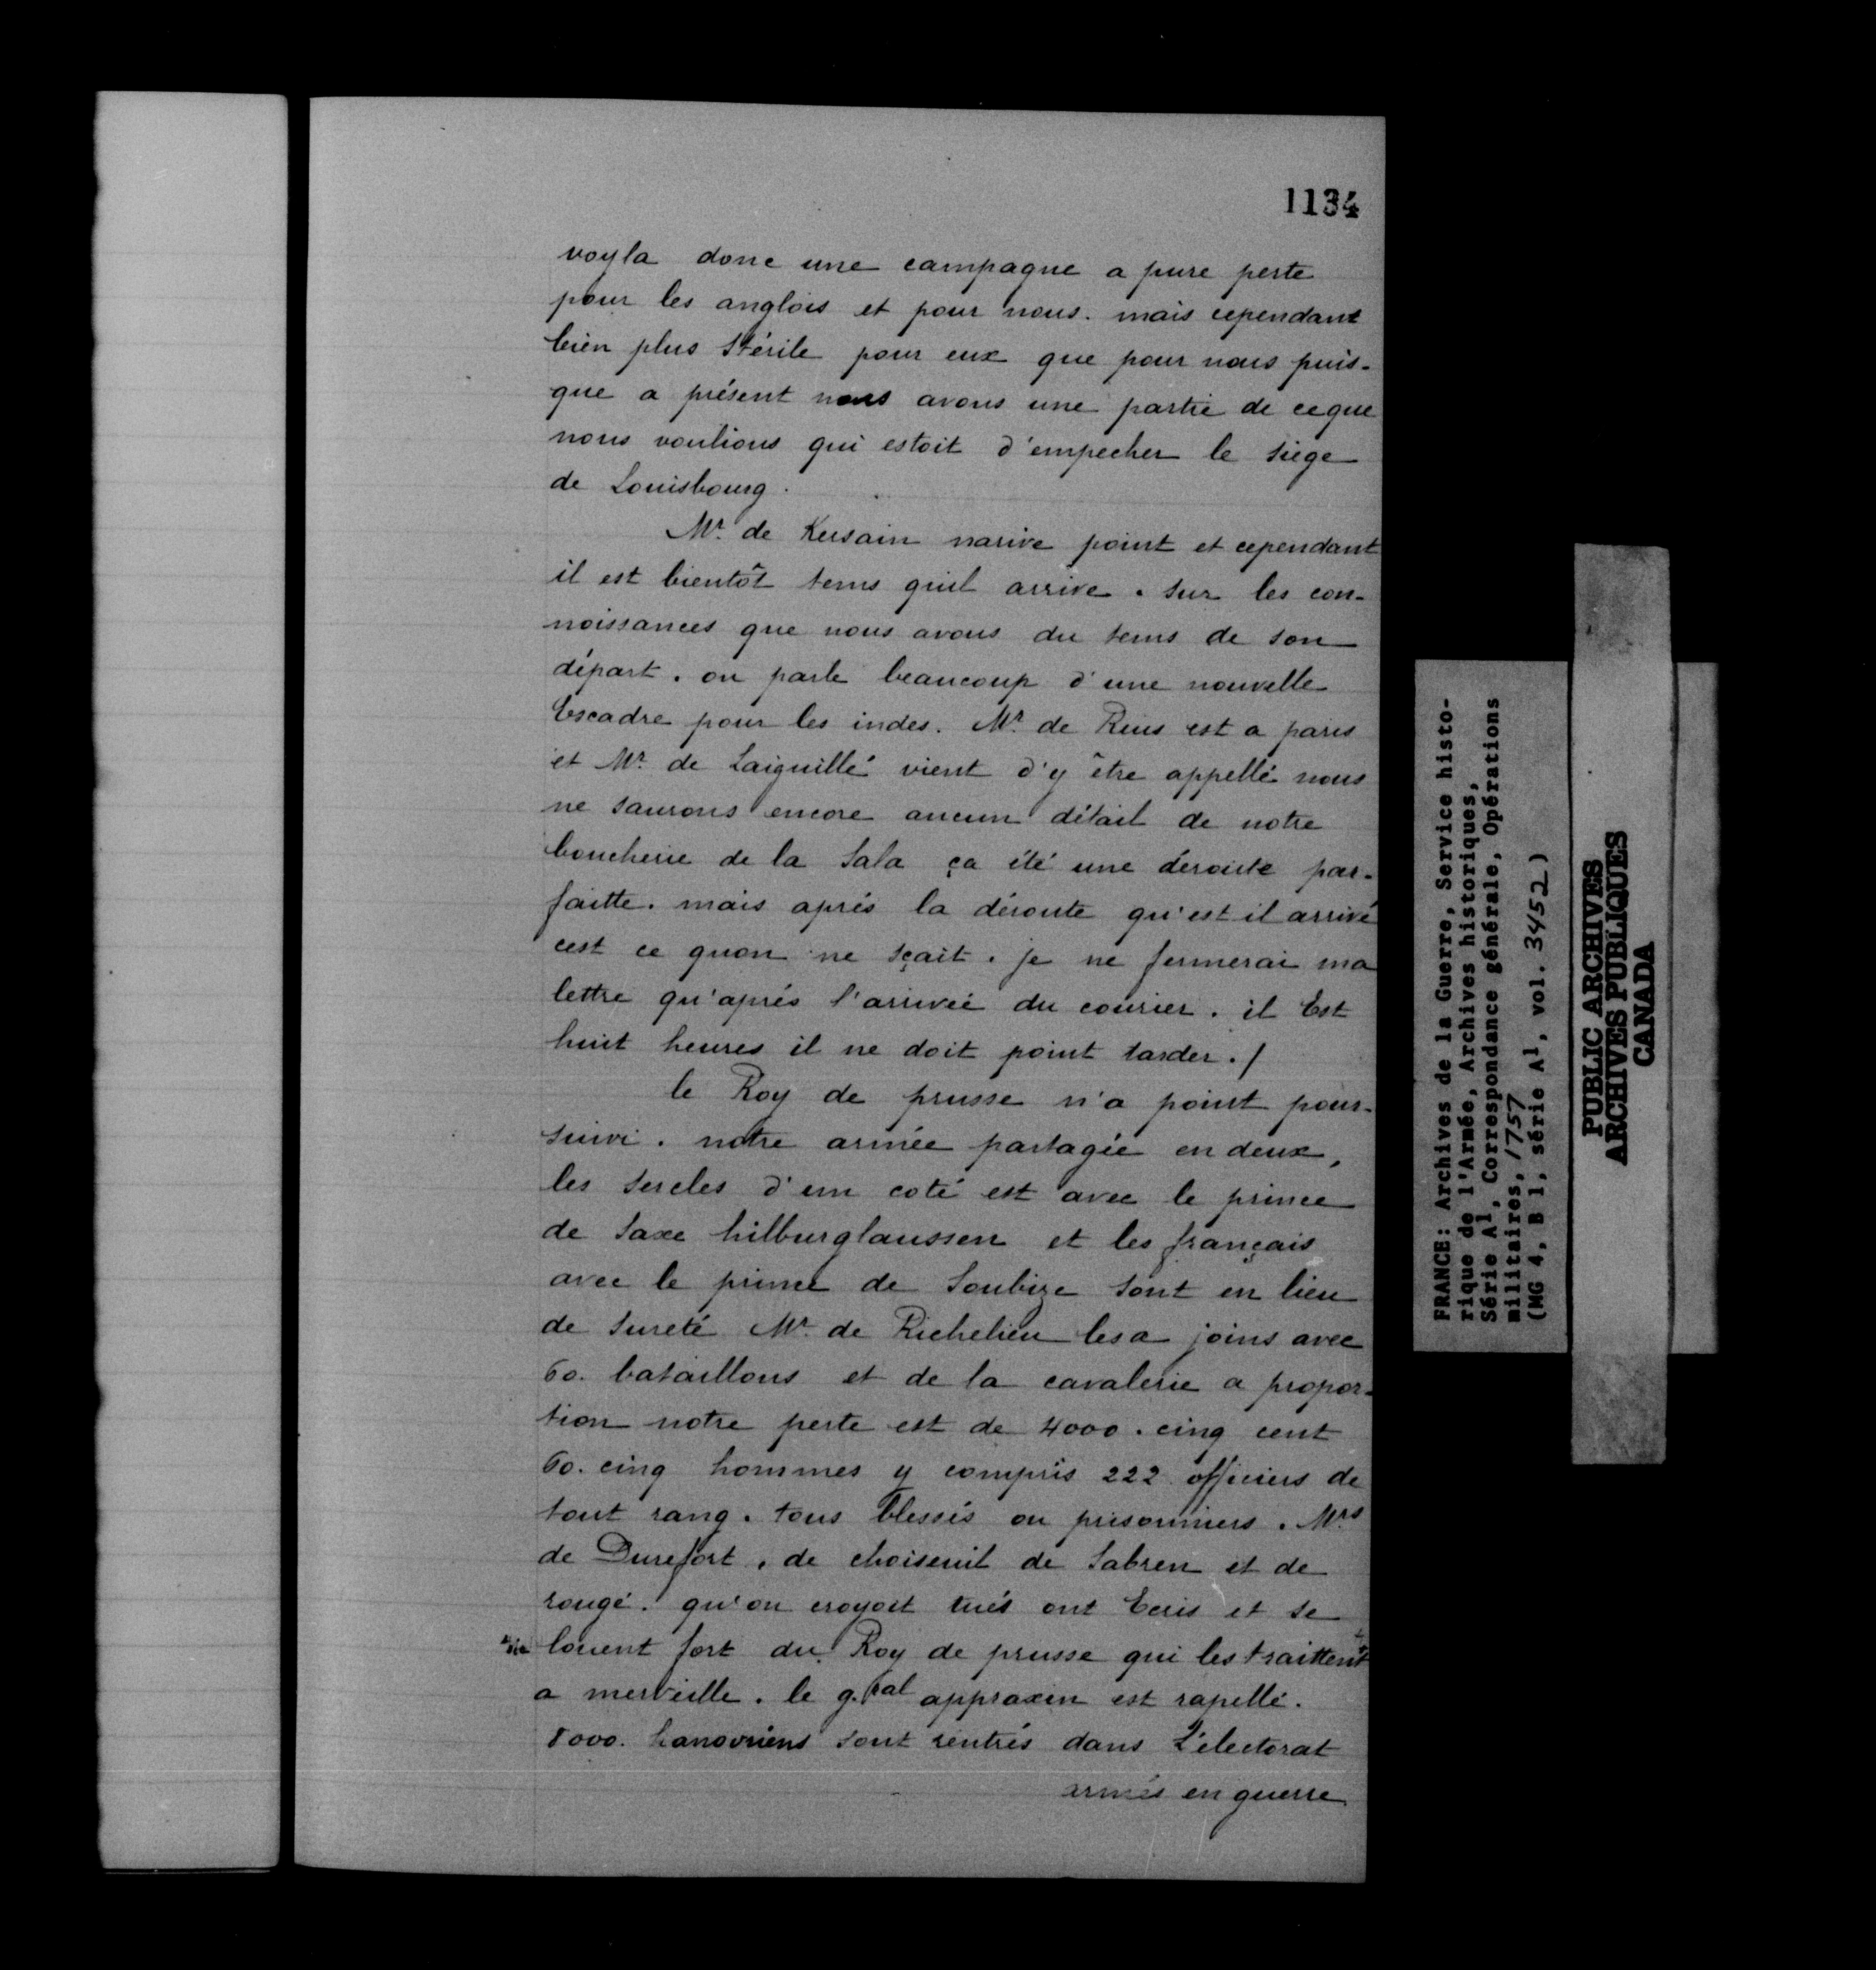 1134
voyla donc une campagne a pure perte
pour les anglois et pour nous. mais cependant
bien plus stérile pour eux que pour nous puis-
que a présent nous avons une partie de ceque
nous voulions qui estoit d'empecher le siege
de Louisbourg.
Mr. de Kersain narive point et cependant
il est bientôt tems quil arrive. sur les con-
noissances que nous avons du tems de son
départ. on parle beaucoup d'une nouvelle
Escadre pour les indes. Mr. de Reus est a paris
et Mr. de Laiguillé vient d'y être appellé nous
ne saurons encore aucun détail de notre
boucherie de la Sala ça été une déroute par-
faitte. mais aprés la déroute qu'est il arrivé
cest ce quon ne sçait. je ne fermerai ma
lettre qu'aprés l'arrivée du courier. il Est
huit heures il ne doit point tarder./
le Roy de prusse n'a point pour-
suivi. notre armée partagée en deux,
les sercles d'un coté est avec le prince
de Saxe hilburglaussen et les français
avec le prince de Soubize sont en lieu
de sureté Mr. de Richelieu lesa joins avec
60. bataillons et de la cavalerie a propor-
tion notre perte est de 4000. cinq cent
60. cinq hommes y compris 222 officiers de
tout rang. tous blessés ou prisonniers. Mrs
de Durefort, de choiseuil de Sabren et de
rougé. qu'on croyoit tués ont Ecris et se
+ sic louent fort du Roy de prusse qui les traittent +
a merveille. le g.ral appraxin est rapellé.
8000. hanovriens sont rentrés dans L'électorat
armés en guerre
FRANCE: Archives de la Guerre, Service histo-
rique de l'Armée, Archives historiques,
Série A1, Correspondance générale, Opérations
militaires, 1757
(MG 4, B 1, série A1, vol. 3452)
PUBLIC ARCHIVES
ARCHIVES PUBLIQUES
CANADA